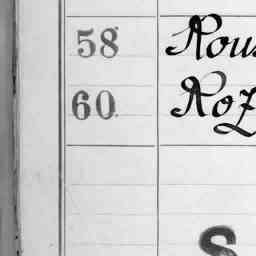 58 Rous
60 Roz
S